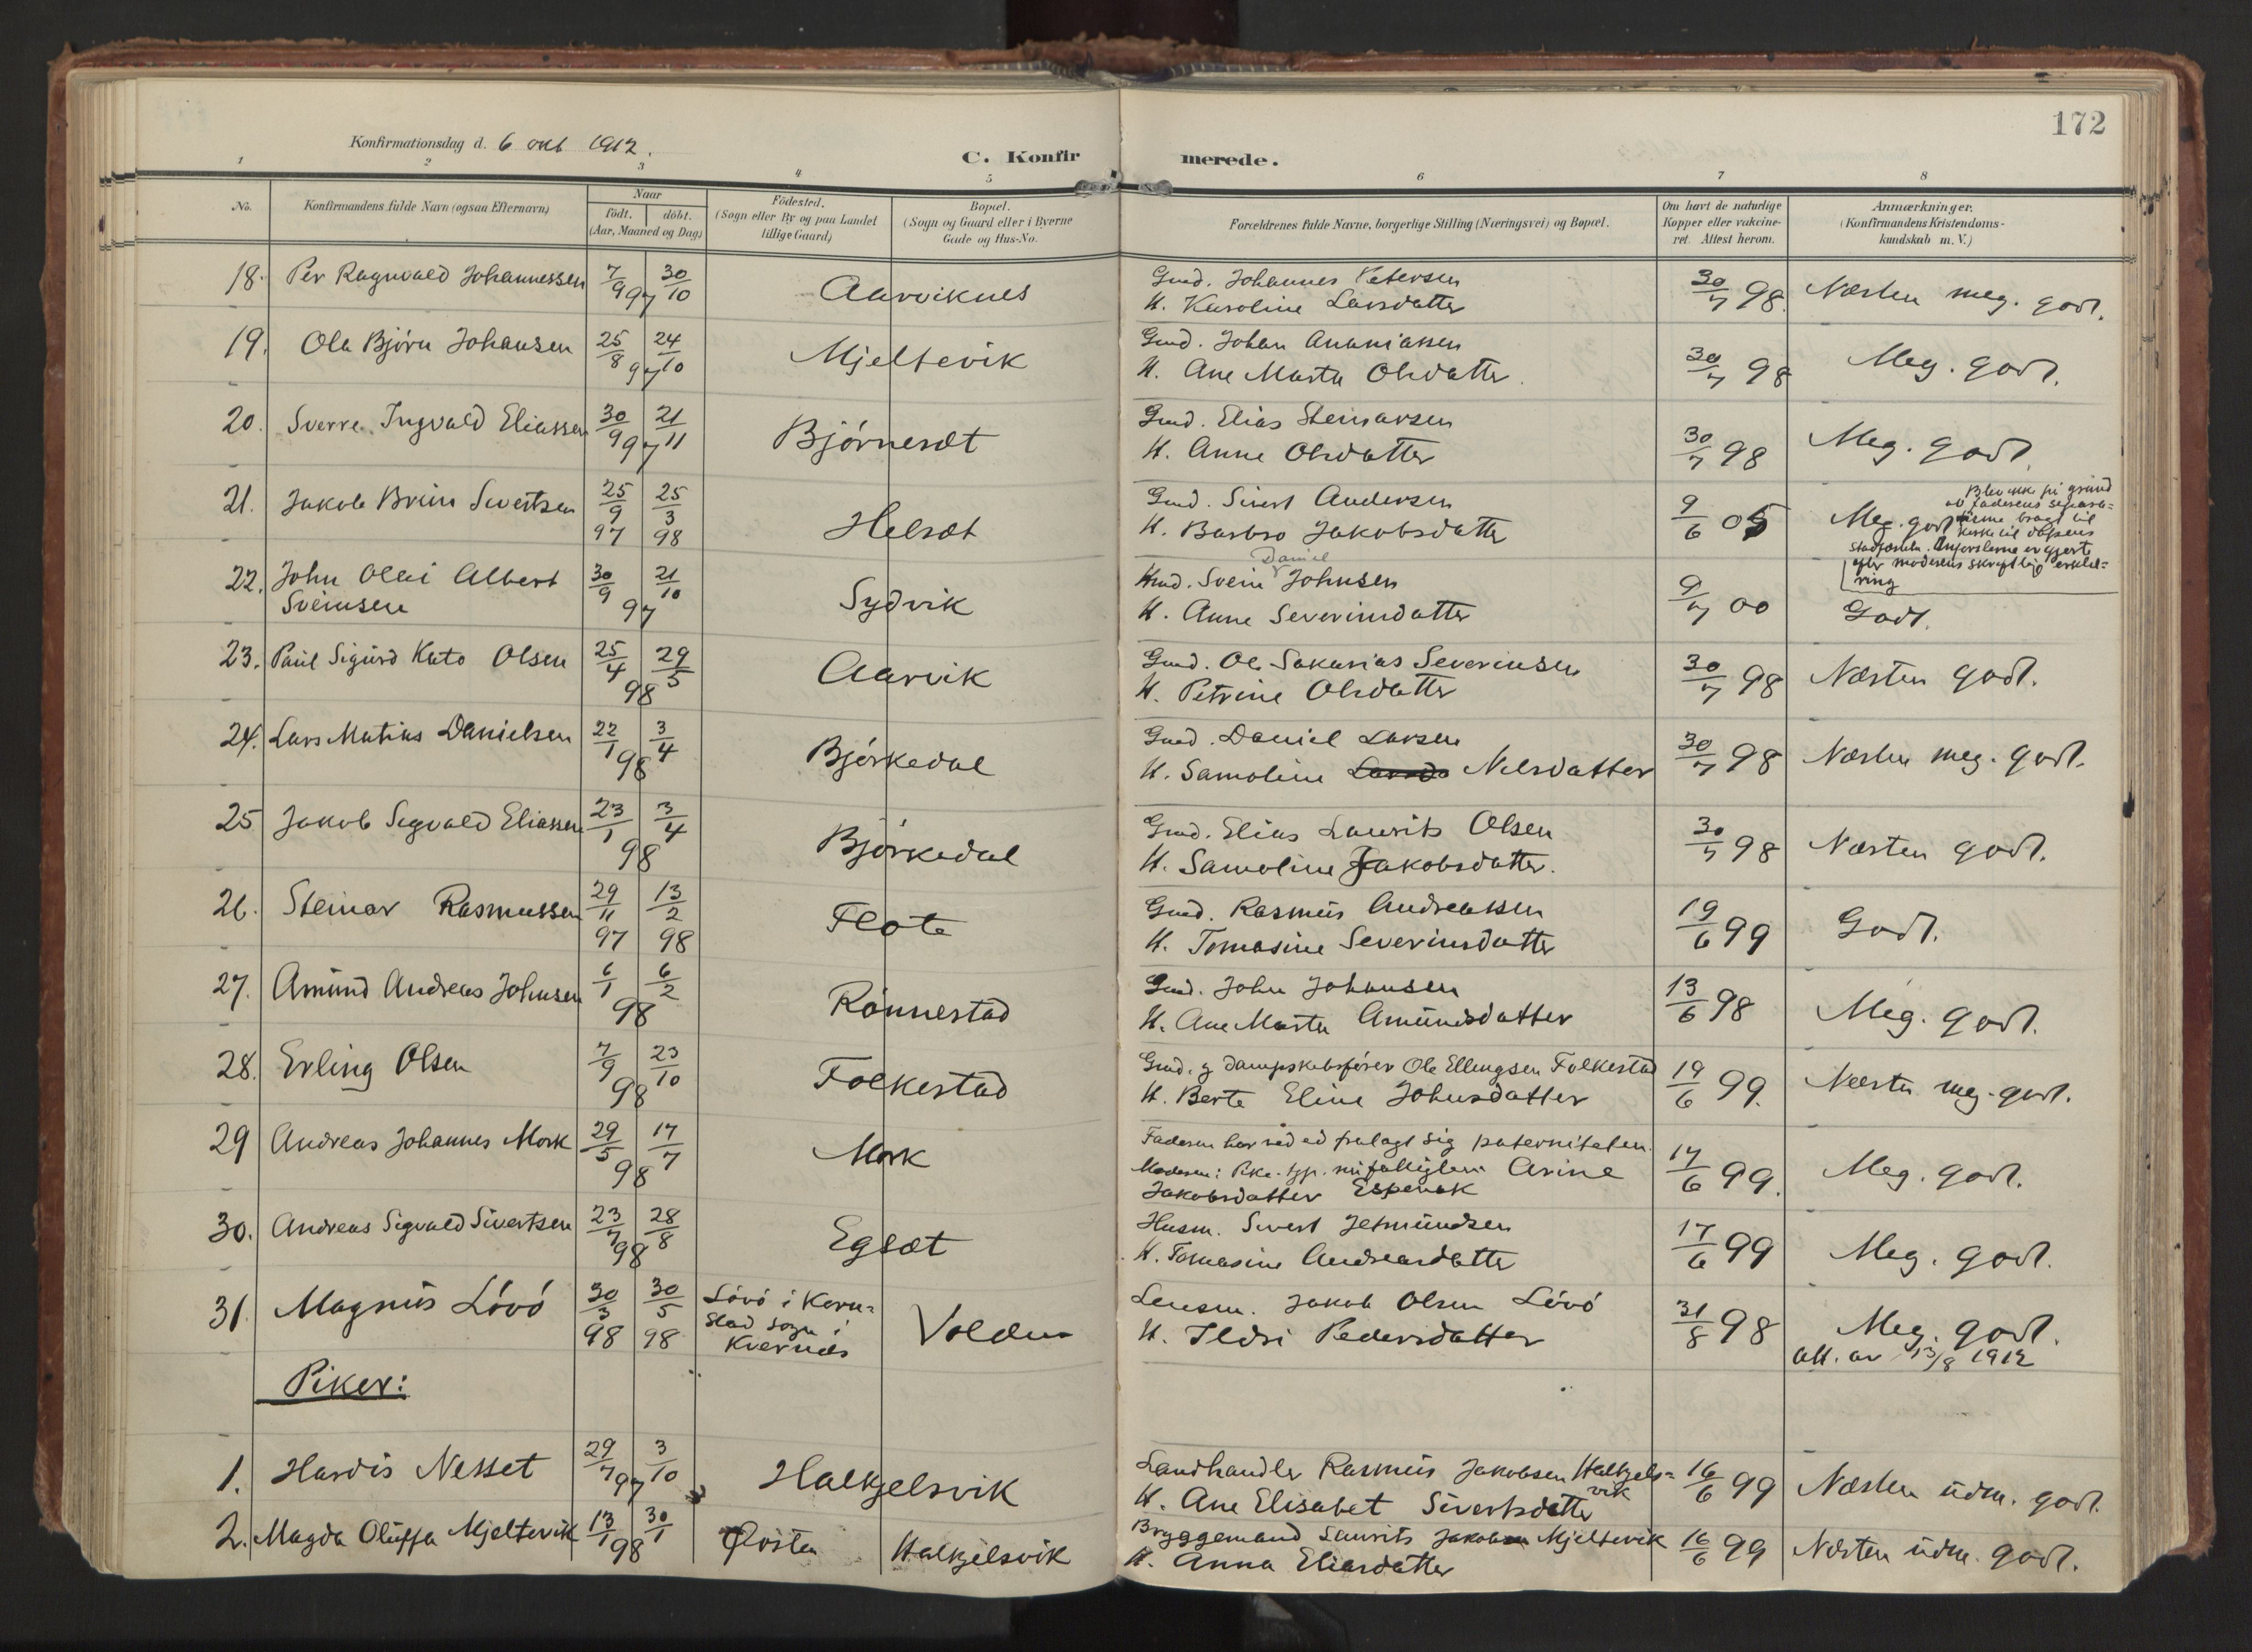 172
Konfirmationsdag d. 6 okt 1912.
C. Konfirmerede.
1 2 3 4 5 6 7 8
No.
Konfirmandens fulde Navn (ogsaa Efternavn)
Naar
født. døbt.
(Aar, Maaned og Dag)
Fødested.
(Sogn eller By og paa Landet
tillige Gaard)
Bopæl.
(Sogn og Gaard eller i Byerne
Gade og Hus-No.
Forældrenes fulde Navne, borgerlige Stilling (Næringsvei) og Bopæl.
Om havt de naturlige
Kopper eller vakcine-
ret. Attest herom.
Anmærkninger.
(Konfirmandens Kristendoms-
kundskab m. V.)
18. Per Ragnvald Johannessen 7/9 97 30/10 Aarviknes Gmd. Johannes Petersen
H. Karoline Larsdatter 30/7 98. Næsten meg. godt.
19. Ole Bjørn Johansen 25/8 97 24/10 Mjeltevik Gmd. Johan Ananiassen
H. Ane Marta Olsdatter. 30/7 98 Meg. godt.
20. Sverre Ingvald Eliassen 30/9 97 21/11 Bjørneset Gmd. Elias Steinarsen
H. Anne Olsdatter 30/7 98 Meg. godt.
21. Jakob Brun Sivertsen 25/9 97 25/3 98 Helset Gmd. Sivert Andersen
H. Barbro Jakobsdatter 9/6 05 Meg. godt
Blev ikke på grund
av faderens separa-
tisme bragt til
kirke til dåpens
stadfæstelse. Anførslerne er gjort
efter moderens skriftlig erklæ-
ring
22. John Olai Albert
Sveinsen 30/9 97 21/10 Sydvik Kmd. Svein Daniel Johnsen
H. Anne Severinsdatter 9/7 00 Godt.
23. Paul Sigurd Kato Olsen 25/4 98 29/5 Aarvik Gmd. Ole Sakarias Severinsen
H. Petrine Olsdatter 30/7 98 Næsten godt.
24. Lars Matias Danielsen 22/1 98 3/4 Bjørkedal Gmd. Daniel Larsen
H. Samoline Larsda Nilsdatter 30/7 98 Næsten meg. godt.
25 Jakob Sigvald Eliassen 23/1 98 3/4 Bjørkedal Gmd. Elias Laurits Olsen
H. Samoline Jakobsdatter. 30/7 98 Næsten godt.
26. Steinar Rasmussen 29/11 97 13/2 98 Flote Gmd. Rasmus Andreassen
H. Tomasine Severinsdatter 19/6 99 Godt.
27. Amund Andreas Johnsen 6/1 98 6/2 Rønnestad Gmd. John Johansen
H. Ane Marta Amundsdatter 13/6 98 Meg. godt.
28. Erling Olsen 7/9 98 23/10 Folkestad Gmd. g dampskibsfører Ole Ellingsen Folkestad
H. Berte Eline Johnsdatter 19/6 99. Næsten meg. godt.
29 Andreas Johannes Mork 29/5 98 17/7 Mork Faderen har ved ed fralagt sig paterniteten.
Moderen: Pike Arine
Jakobsdatter Espenak 17/6 99. Meg. godt.
30. Andreas Sigvald Sivertsen 23/7 98 28/8 Egset Husm. Sivert Jetmundsen
H. Tomasine Andreasdatter 17/6 99 Meg. godt.
31. Magnus Løvø 30/3 98 30/5 98 Løvø i Korn-
stad sogn i
Kvernes Volden Lensm. Jakob Olsen Løvø
H. Ildri Pedersdatter 31/8 98 Meg. godt.
att. av 13/8 1912
Piker:
1. Hardis Nesset 29/7 97 3/10 Halkjelsvik Landhandler Rasmus Jakobsen Halkjels-
vik
H. Ane Elisabet Sivertsdatter 16/6 99 Næsten udm. godt.
2. Magda Oluffa Mjeltevik 13/1 98 30/1 Ørsten Halkjelsvik Bryggemand Laurits Jakobsen Mjeltevik
H. Anna Eliasdatter 16/6 99 Næsten udm. godt.